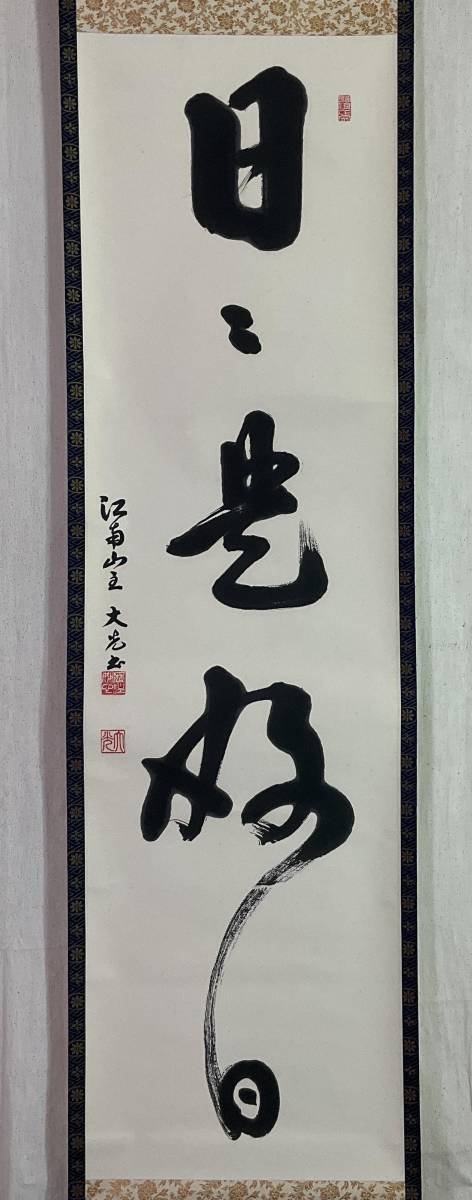 日々是好日
江南山主 大光書